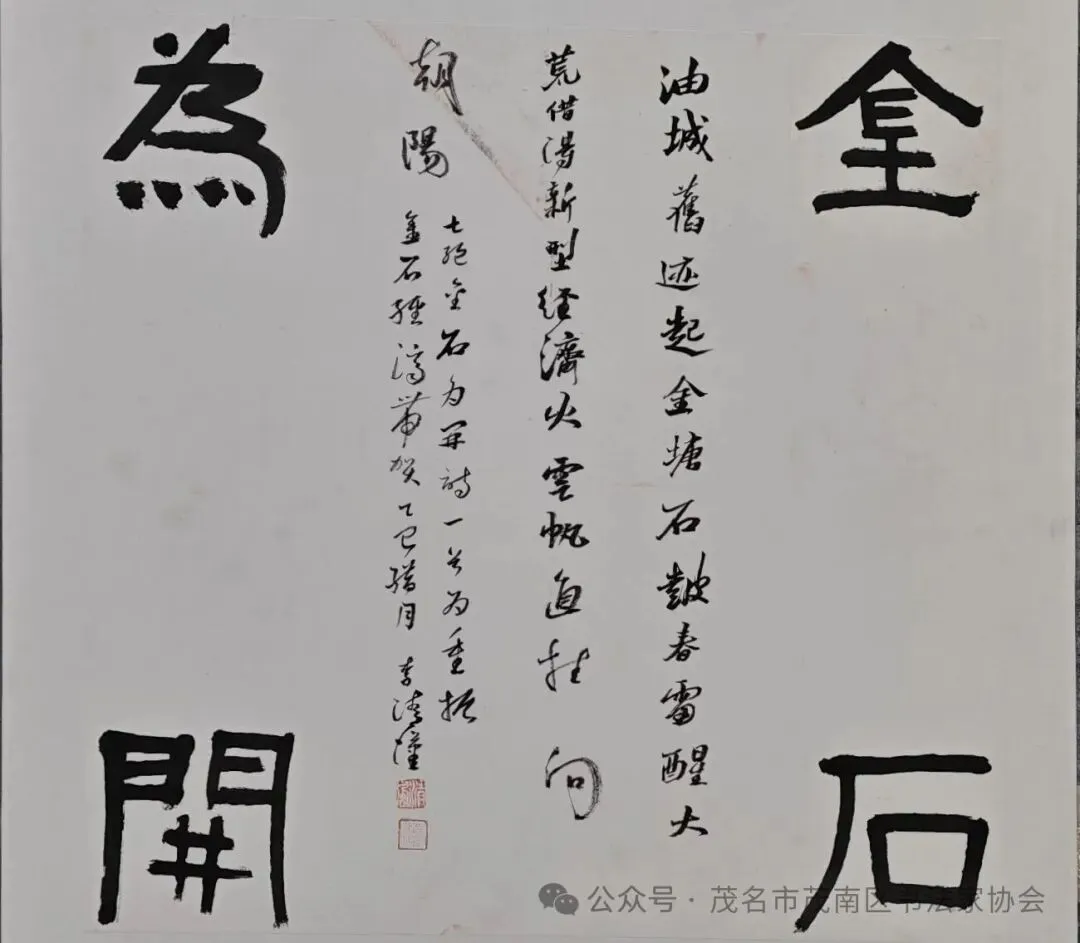 金
石
油城舊迹起金塘石鼓春雷醒大
荒借湯新型經濟火雲帆直挂向
朝陽
七绝金石为开诗一首为重振
金石經濟帶贺乙巳腊月 李清
為
開
公众号·茂名市茂南区书法家协会